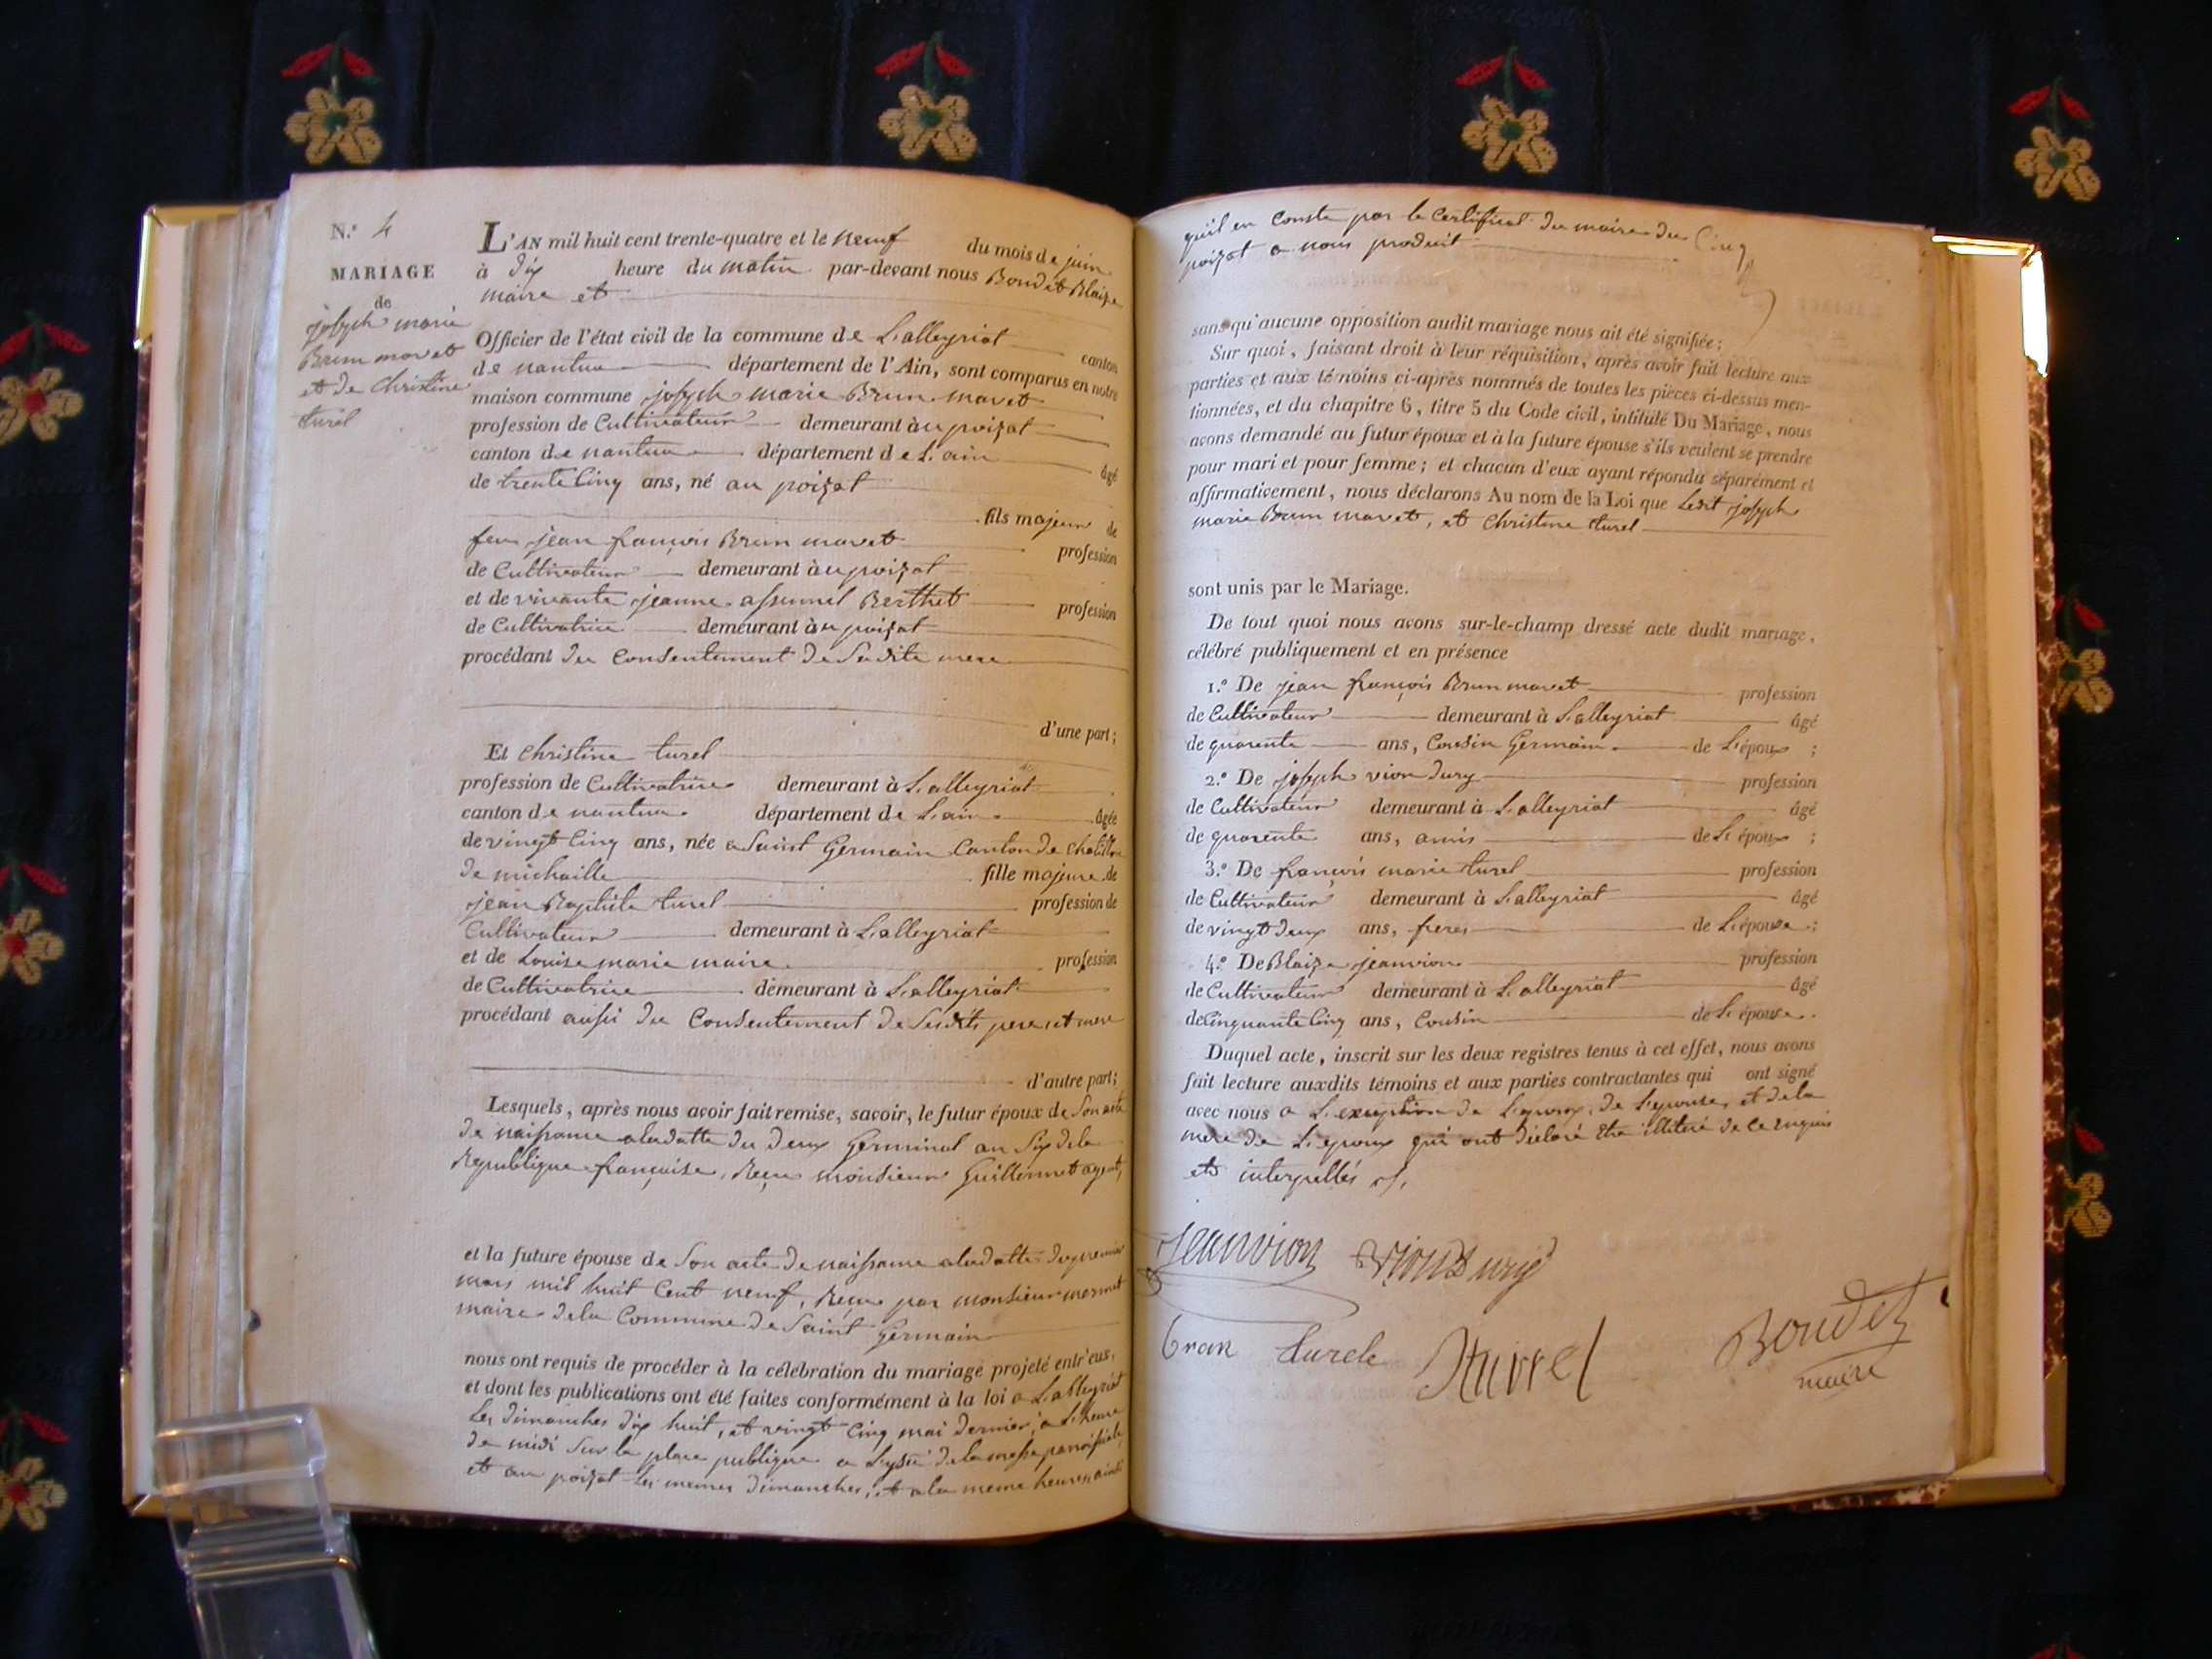 N.o 4
MARIAGE
de
joseph marie
Brun mavet
et de Christine
turel
L'AN mil huit cent trente-quatre et le neuf du mois de juin
à dix heure du matin par-devant nous Boudet Blaize
maire et
Officier de l'état civil de la commune de L'alleyriat canton
de nantua département de l'Ain, sont comparus en notre
maison commune joseph marie Brun mavet
profession de Cultivateur demeurant à au poizat
canton de nantua département de L'ain âgé
de trente Cinq ans, né au poizat
fils majeur de
feu jean françois Brun mavet profession
de Cultivateur demeurant à au poizat
et de vivante jeanne Berthet profession
de Cultivatrice demeurant à au poizat
procédant du Consentement de Sadite mere
d'une part;
Et Christine turel
profession de Cultivatrice demeurant à L'alleyriat
canton de nantua département de L'ain âgée
de vingt Cinq ans, née a Saint Germain Canton de Chatillon
de michaille fille majeure de
jean Baptiste turel profession de
Cultivateur demeurant à L'alleyriat
et de Louise marie maire profession
de Cultivatrice demeurant à L'alleyriat
procédant aussi du Consentement de Sesdits pere et mere
d'autre part;
Lesquels, après nous avoir fait remise, savoir, le futur époux de Son acte
de naissance aladatte du deux Germinal an Six dela
Republique française, Reçu monsieur Guillermet agent,
et la future épouse de Son acte de naissance aladatte du premier
mars mil huit Cent neuf, Reçu par monsieur mermet
maire dela Commune de Saint Germain
nous ont requis de procéder à la célébration du mariage projeté entr'eus,
et dont les publications ont été faites conformément à la loi a L'alleyriat
les dimanches dix huit, et vingt Cinq mai dernier, a L'heure
de midi Sur la place publique a dela messe paroissiale
et au poizat les memes dimanches, et ala meme heure, ainsi
qu'il en Conste par le Certificat du maire du
poizat a nous produit
sans qu'aucune opposition audit mariage nous ait été signifiée;
Sur quoi, faisant droit à leur réquisition, après avoir fait lecture aux
parties et aux témoins ci-après nommés de toutes les pièces ci-dessus men-
tionnées, et du chapitre 6, titre 5 du Code civil, intitulé Du Mariage, nous
avons demandé au futur époux et à la future épouse s'ils veulent se prendre
pour mari et pour femme; et chacun d'eux ayant répondu séparément et
affirmativement, nous déclarons Au nom de la Loi que Ledit joseph
marie Brun mavet, et Christine turel
sont unis par le Mariage.
De tout quoi nous avons sur-le-champ dressé acte dudit mariage,
célébré publiquement et en présence
1.o De jean françois Brun mavet profession
de Cultivateur demeurant à L'alleyriat âgé
de quarente ans, Cousin Germain de L'époux ;
2.o De joseph vion dury profession
de Cultivateur demeurant à L'alleyriat âgé
de quarente ans, amis de L'époux ;
3.o De françois marie turel profession
de Cultivateur demeurant à L'alleyriat âgé
de vingt deux ans, freres de L'épouse ;
4.o De Blaize jeanvion profession
de Cultivateur demeurant à L'alleyriat âgé
de Cinquante Cinq ans, Cousin de L'épouse.
Duquel acte, inscrit sur les deux registres tenus à cet effet, nous avons
fait lecture auxdits témoins et aux parties contractantes qui ont signé
avec nous a L'exception de L'epoux, de L'epouse, et dela
mere de L'epoux qui ont déclaré Etre illiteré de ce enquis
et interpellés
Jeanvion Viondury
turele Turrel Boudet
maire